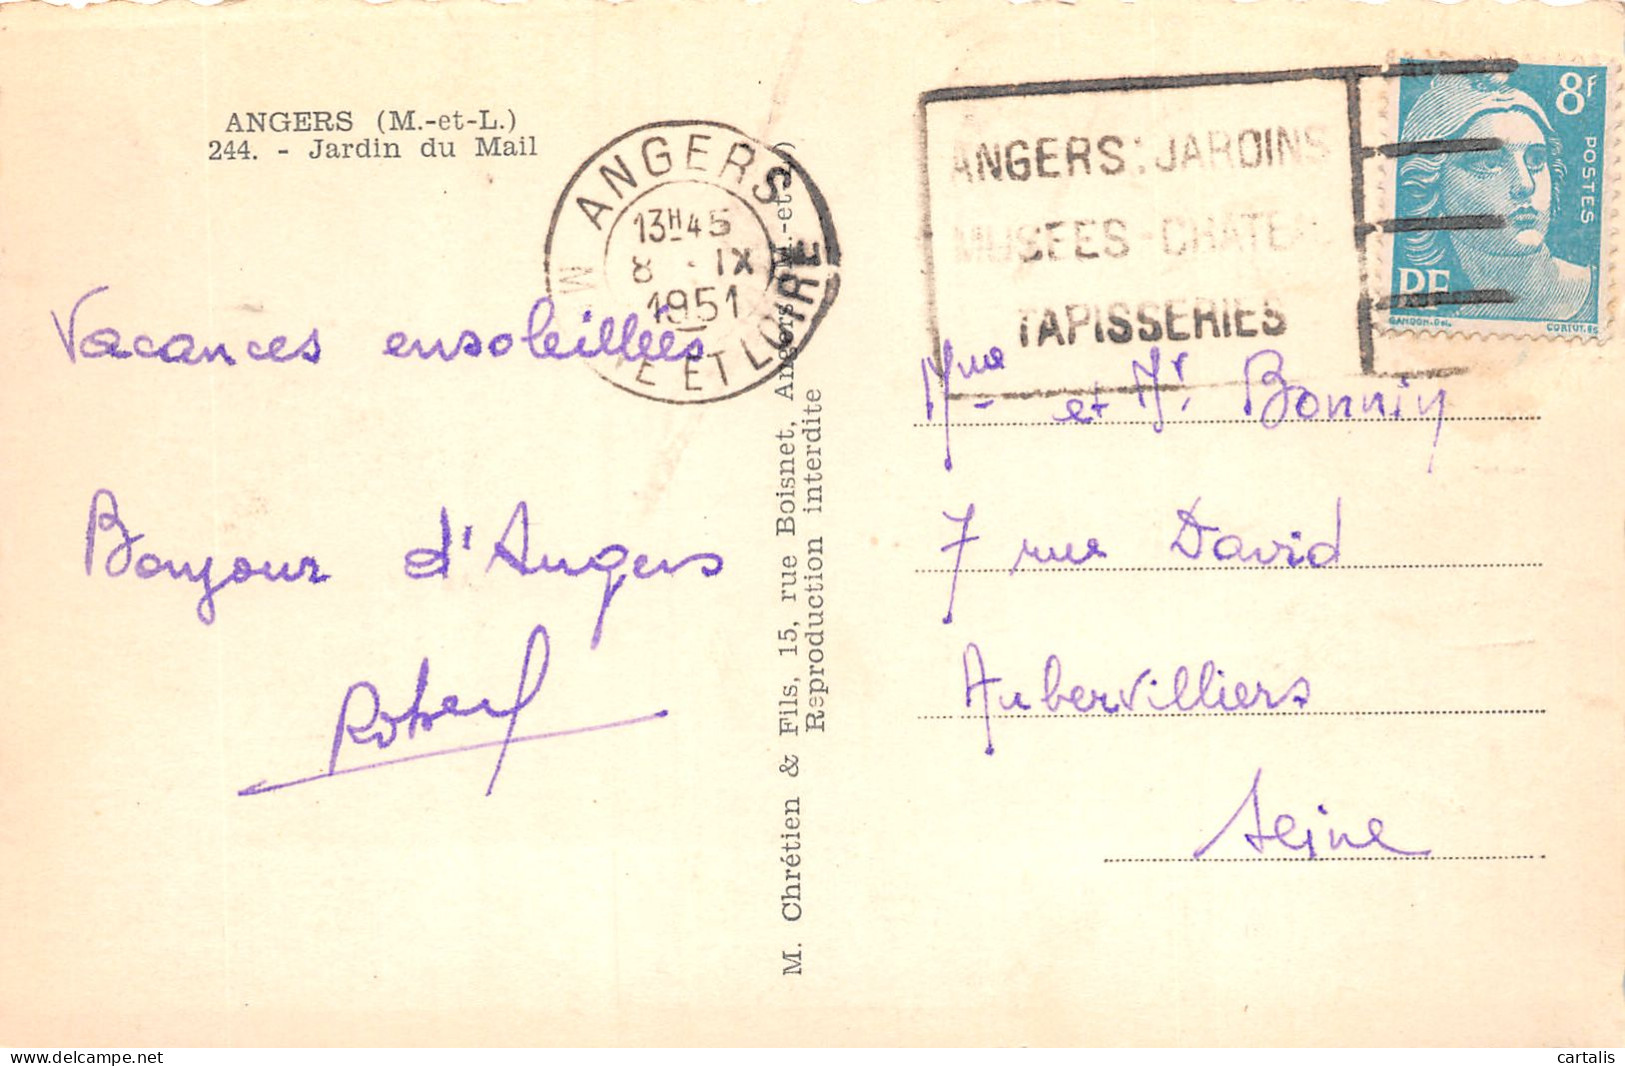 ANGERS (M.-et-L.)
244. - Jardin du Mail
ANGERS
13H45
8 IX
1951
ET LOIRE
ANGERS: JARDINS
MUSEES - CHATEAU
TAPISSERIES
8F
POSTES
RF
GANDON.DEL.
CORTOT.SC
Vacances ensoleillées
Bonjour d'Angers
Robert
M. Chrétien & Fils, 15, rue Boisnet, Angers (M.-et-L.)
Reproduction interdite
Mme et Mr. Bonnin
7 rue David
Aubervilliers
Seine
delcampe.net
cartalis